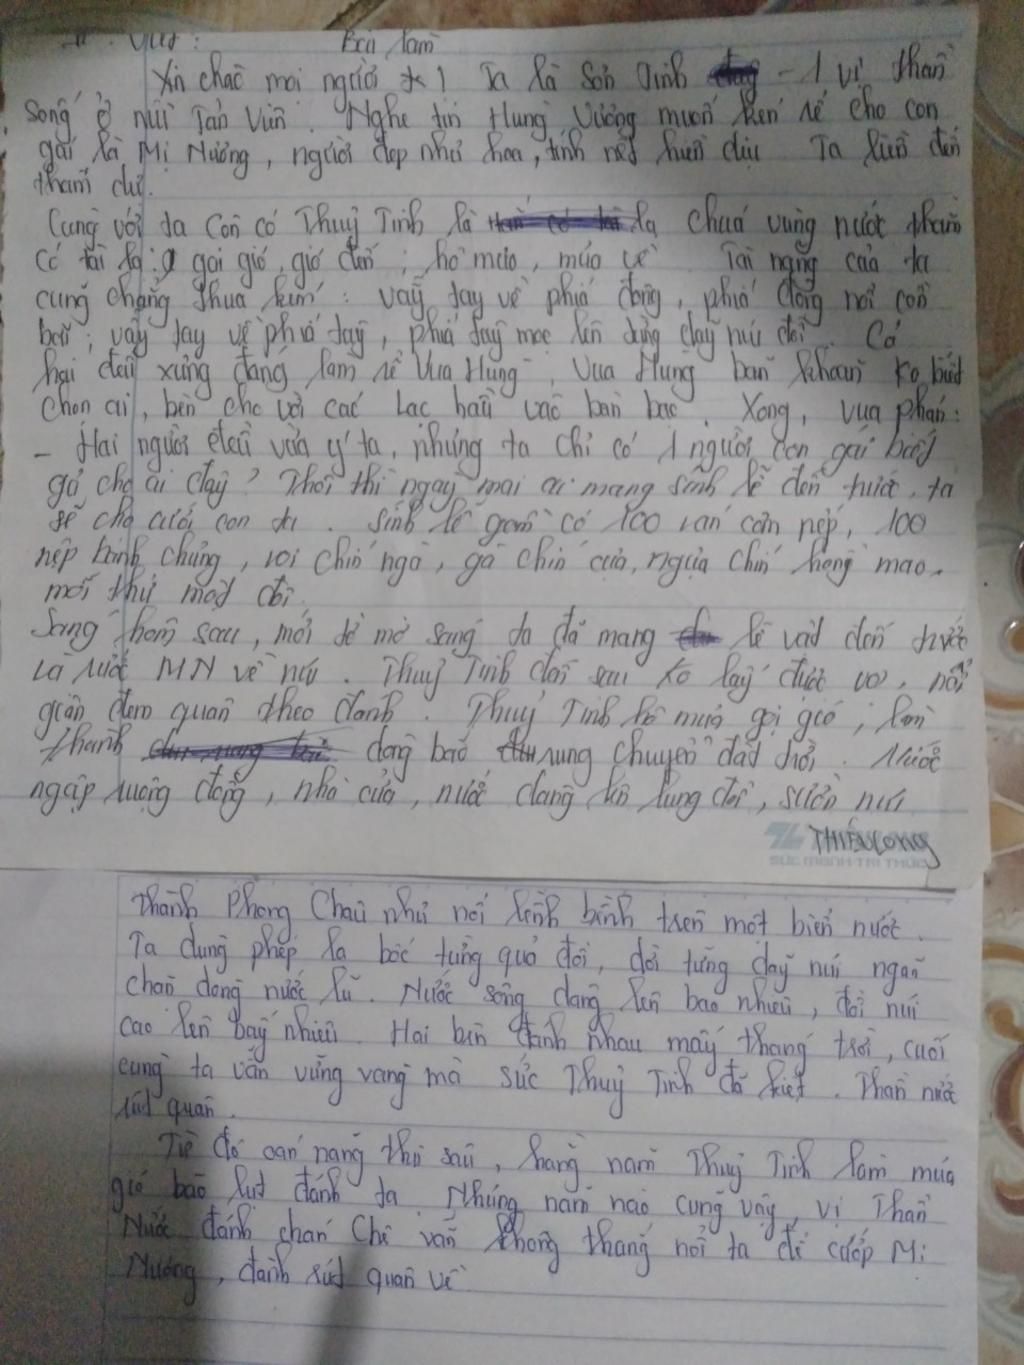 II. Viết: Bài làm
Xin chào mọi người! Ta là Sơn Tinh - 1 vị thần
sống ở núi Tản Viên. Nghe tin Hùng Vương muốn kén rể cho con
gái là Mị Nương, người đẹp như hoa, tính nết hiền dịu Ta liền đến
tham dự.
Cùng với ta còn có Thuỷ Tinh là là chúa vùng nước thẳm
có tài lạ: gọi gió, gió đến; hô mưa, mưa về Tài năng của ta
cũng chẳng thua kém: vẫy tay về phía đông, phía đông nổi cồn
bãi; vẫy tay về phía tây, phía tây mọc lên từng dãy núi đồi. Cả
hai đều xứng đáng làm rể Vua Hùng, Vua Hùng băn khoăn ko biết
chọn ai, bèn cho vời các Lạc hầu vào bàn bạc. Xong, vua phán:
- Hai người đều vừa ý ta, nhưng ta chỉ có 1 người con gái biết
gả cho ai đây? Thôi thì ngày mai ai mang sính lễ đến trước, ta
sẽ cho cưới con ta. Sính lễ gồm có 100 ván cơm nếp, 100
nệp bánh chưng, voi chín ngà, gà chín cựa, ngựa chín hồng mao,
mỗi thứ một đôi.
Sáng hôm sau, mới tờ mờ sáng ta đã mang lễ vật đến trước
và rước MN về núi. Thuỷ Tinh đến sau ko lấy được vợ, nổi
giận đem quân theo đánh. Thuỷ Tinh hô mưa gọi gió, làm
thành dông bão rung chuyển đất trời. Nước
ngập ruộng đồng, nhà cửa, nước dâng lên lưng đồi, sườn núi
THIÊN LONG
SỨC MẠNH TRI THỨC
Thành Phong Châu như nổi lềnh bềnh trên một biển nước.
Ta dùng phép lạ bốc từng quả đồi, dời từng dãy núi ngăn
chặn dòng nước lũ. Nước sông dâng lên bao nhiêu, đồi núi
cao lên bấy nhiêu. Hai bên đánh nhau mấy tháng trời, cuối
cùng ta vẫn vững vàng mà sức Thuỷ Tinh đã kiệt. Thần nước
rút quân.
Từ đó oán nặng thù sâu, hàng năm Thuỷ Tinh làm mưa
gió bão lụt đánh ta. Nhưng năm nào cũng vậy, vị Thần
Nước đánh chán chê vẫn không thắng nổi ta để cướp Mị
Nương, đành rút quân về